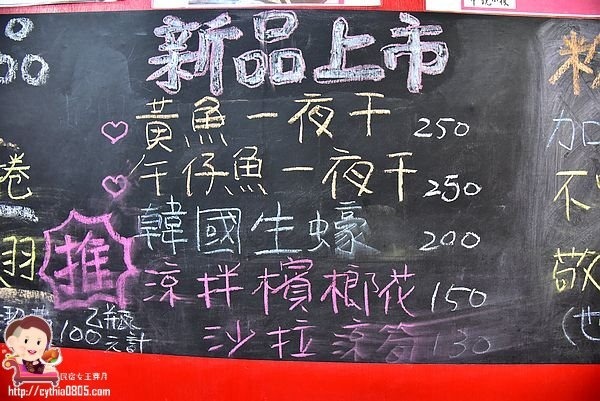 新品上市
♡黃魚一夜干 250
♡午仔魚一夜干 250
推
韓國生蠔 200
涼拌檳榔花 150
沙拉涼筍 130
品
捲
翅
100元計
乙瓶
加
不
敬
民宿女王芽月
http://cythia0805.com